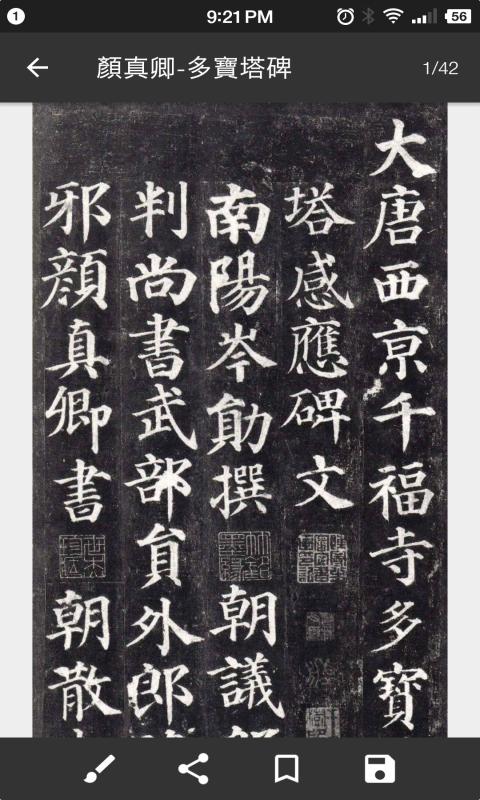 1
9:21 PM
56
顏真卿-多寶塔碑
1/42
大唐西京千福寺多寶
塔感應碑文
南陽岑勛撰 朝議
判尚書武部員外郎
邪顏真卿書 朝散